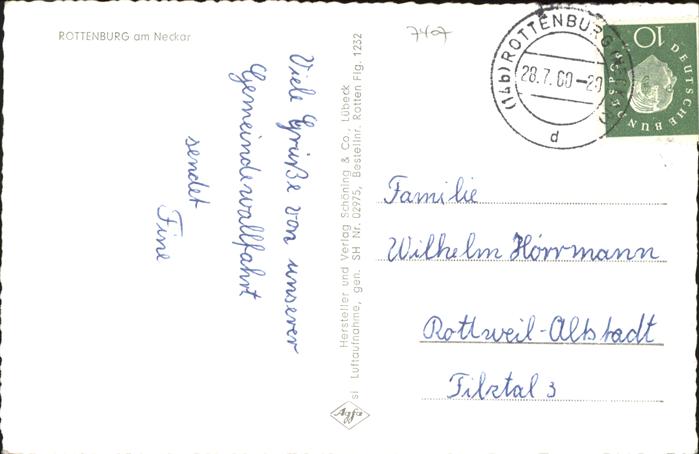 ROTTENBURG am Neckar
7407
Viele Grüße von unserer
Gemeindewallfahrt
sendet
Fine
Hersteller und Verlag Schöning & Co., Lübeck
si Luftaufnahme, gen. SH Nr. 02975, Bestellnr. Rotten Flg. 1232
Agfa
(14b) ROTTENBURG
28.7.60-20
d
10
DEUTSCHE BUNDESPOST
Familie
Wilhelm Hörrmann
Rottweil-Altstadt
Filztal 3